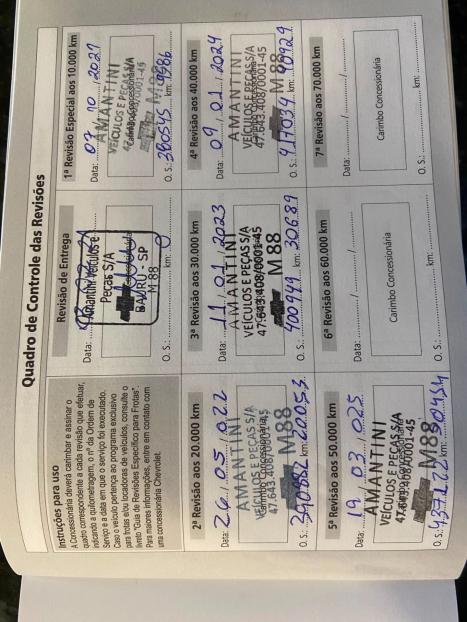 Quadro de Controle das Revisões
Instruções para uso
A Concessionária deverá carimbar e assinar o
quadro correspondente a cada revisão que efetuar,
indicando a quilometragem, o nº da Ordem de
Serviço e a data em que o serviço foi executado.
Caso o veículo pertença ao programa exclusivo
para frotas e/ou locadoras de veículos, consulte o
livreto "Guia de Revisões Específico para Frotas".
Para maiores informações, entre em contato com
uma concessionária Chevrolet.
Revisão de Entrega
Data:
Amantini Veículos e
Peças S/A
BAURU - SP
M88
O. S.: km:
1ª Revisão Especial aos 10.000 km
Data: 07 / 10 / 2021
AMANTINI
VEÍCULOS E PEÇAS S/A
M88
O. S.: 380545 km: 9586
2ª Revisão aos 20.000 km
Data: 26 / 05 / 022
AMANTINI
VEÍCULOS E PEÇAS S/A
47.643.408/0001-45
M88
O. S.: km: 20053
3ª Revisão aos 30.000 km
Data: 11 / 01 / 2023
AMANTINI
VEÍCULOS E PEÇAS S/A
47.643.408/0001-45
M88
O. S.: 400949 km: 30689
4ª Revisão aos 40.000 km
Data: 09 / 01 / 2024
AMANTINI
VEÍCULOS E PEÇAS S/A
47.643.408/0001-45
M88
O. S.: 417034 km: 40929
5ª Revisão aos 50.000 km
Data: 19 / 03 / 025
AMANTINI
VEÍCULOS E PEÇAS S/A
47.643.408/0001-45
M88
O. S.: km:
6ª Revisão aos 60.000 km
Data: / /
Carimbo Concessionária
O. S.: km:
7ª Revisão aos 70.000 km
Data: / /
Carimbo Concessionária
O. S.: km: